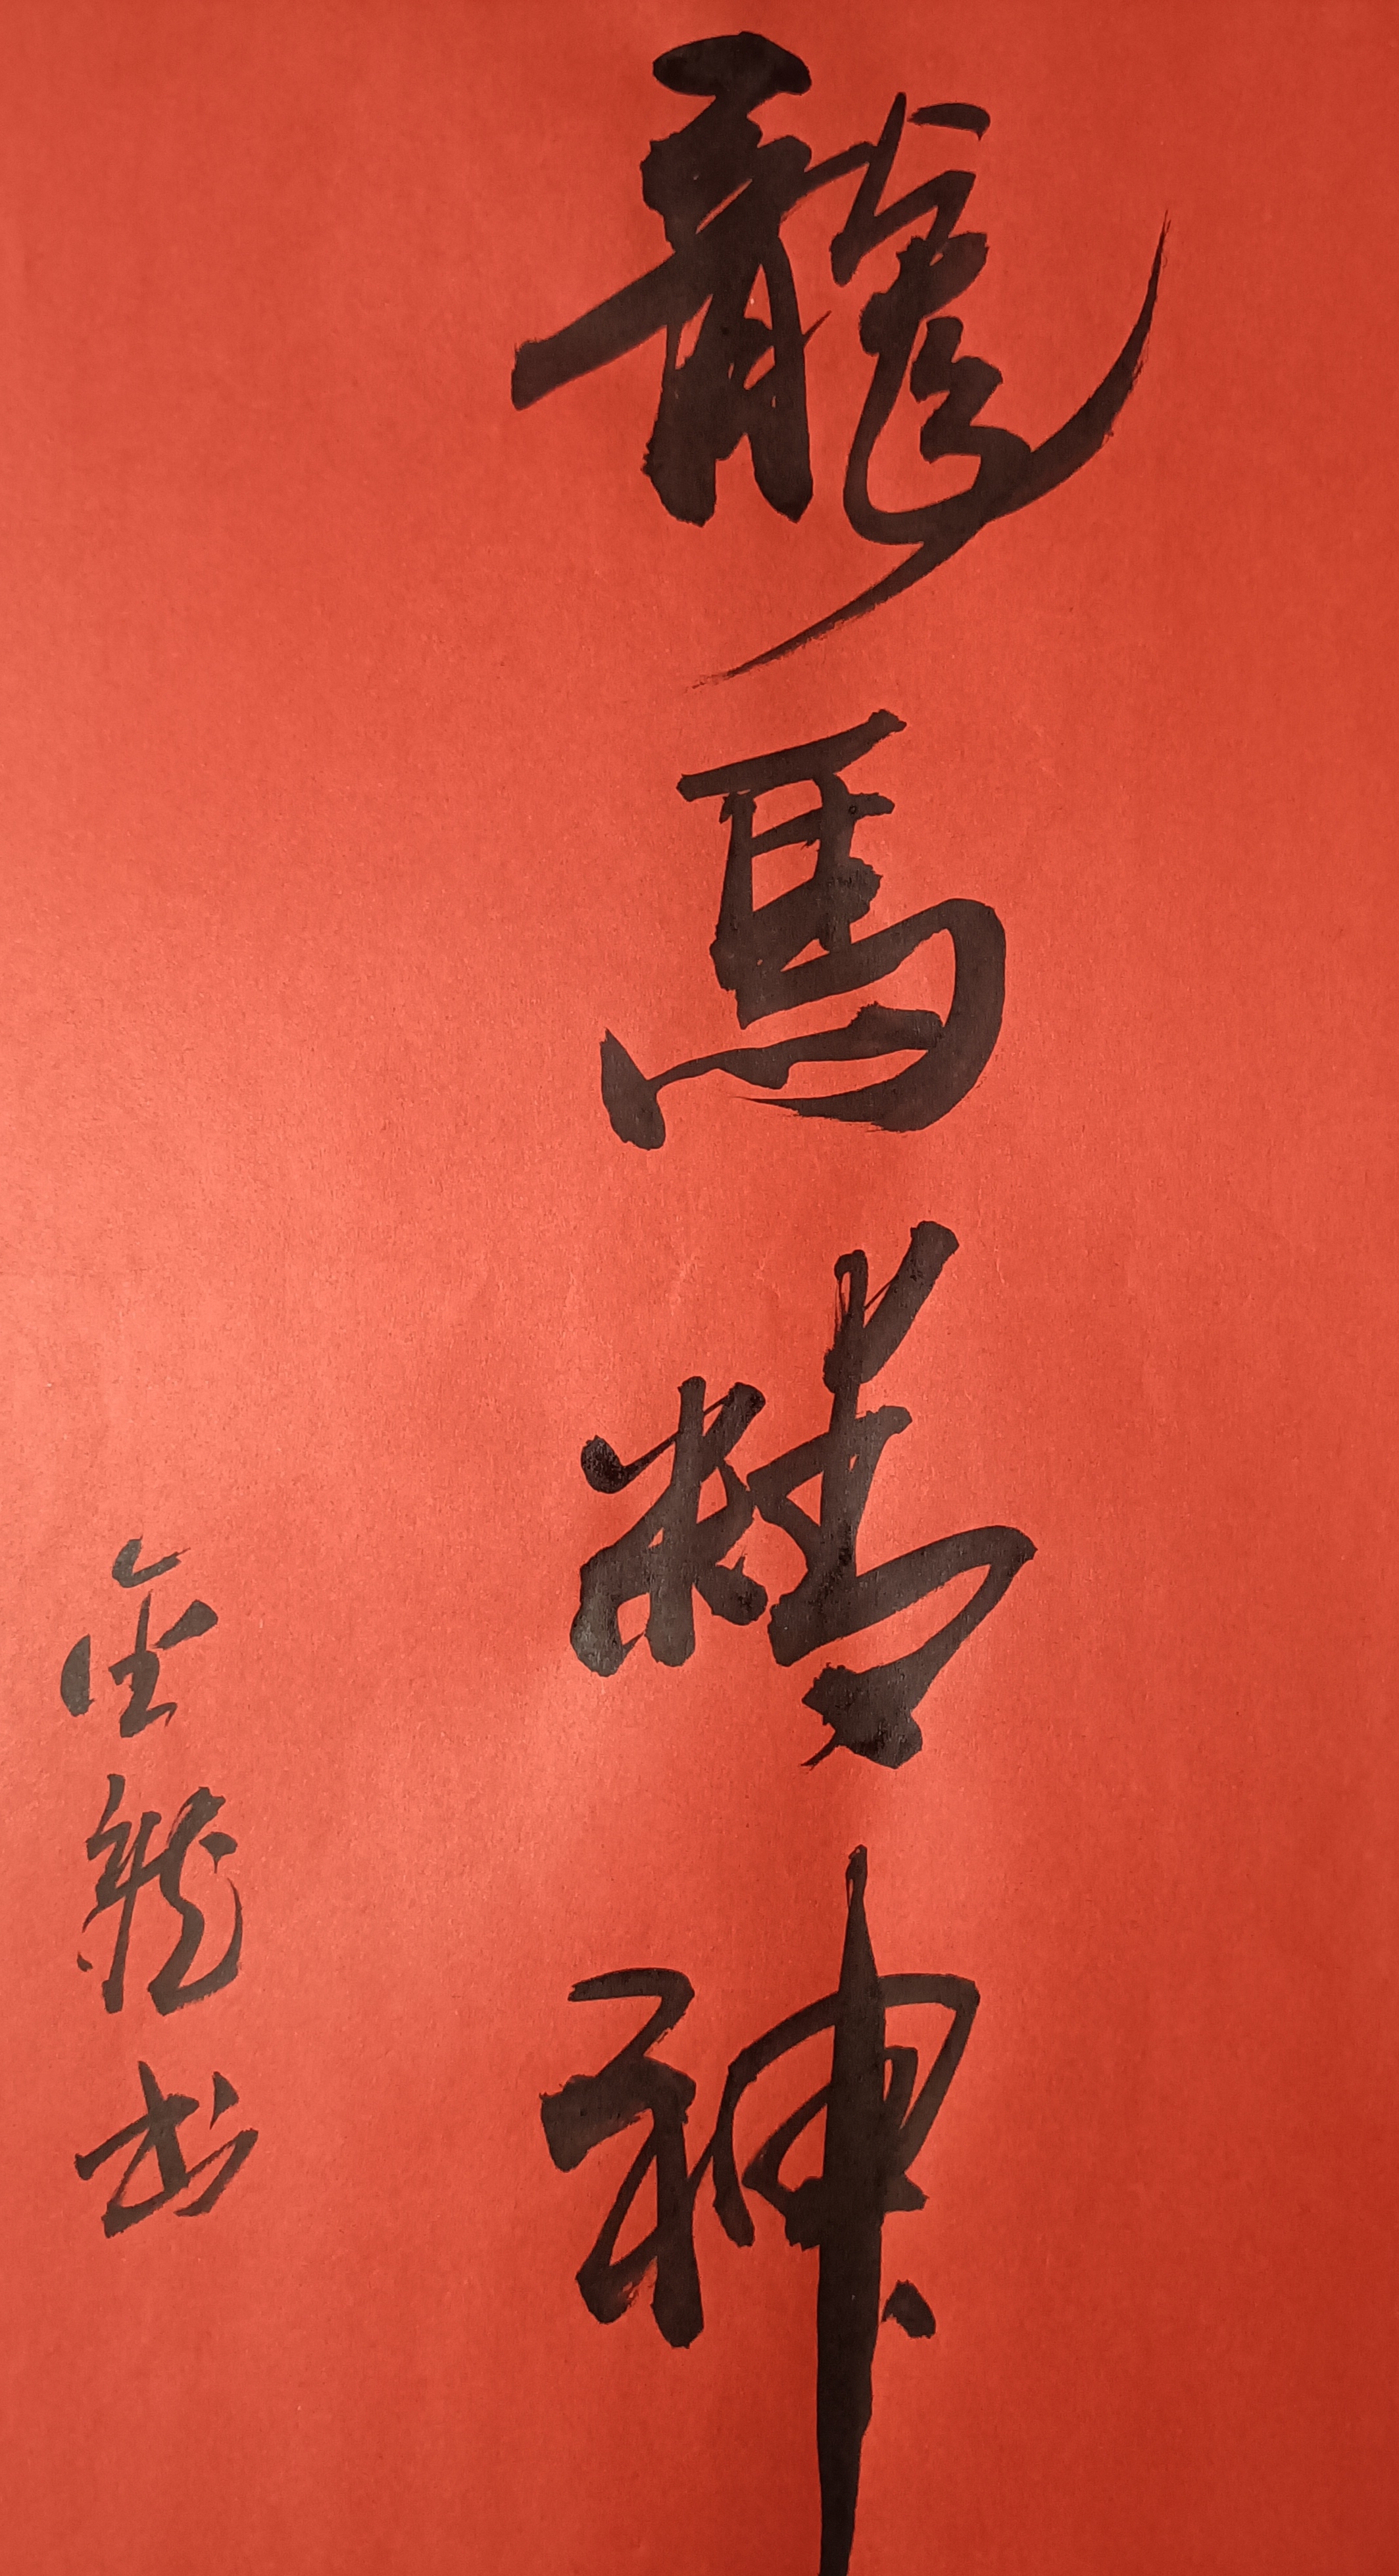 龍馬精神
金龍书